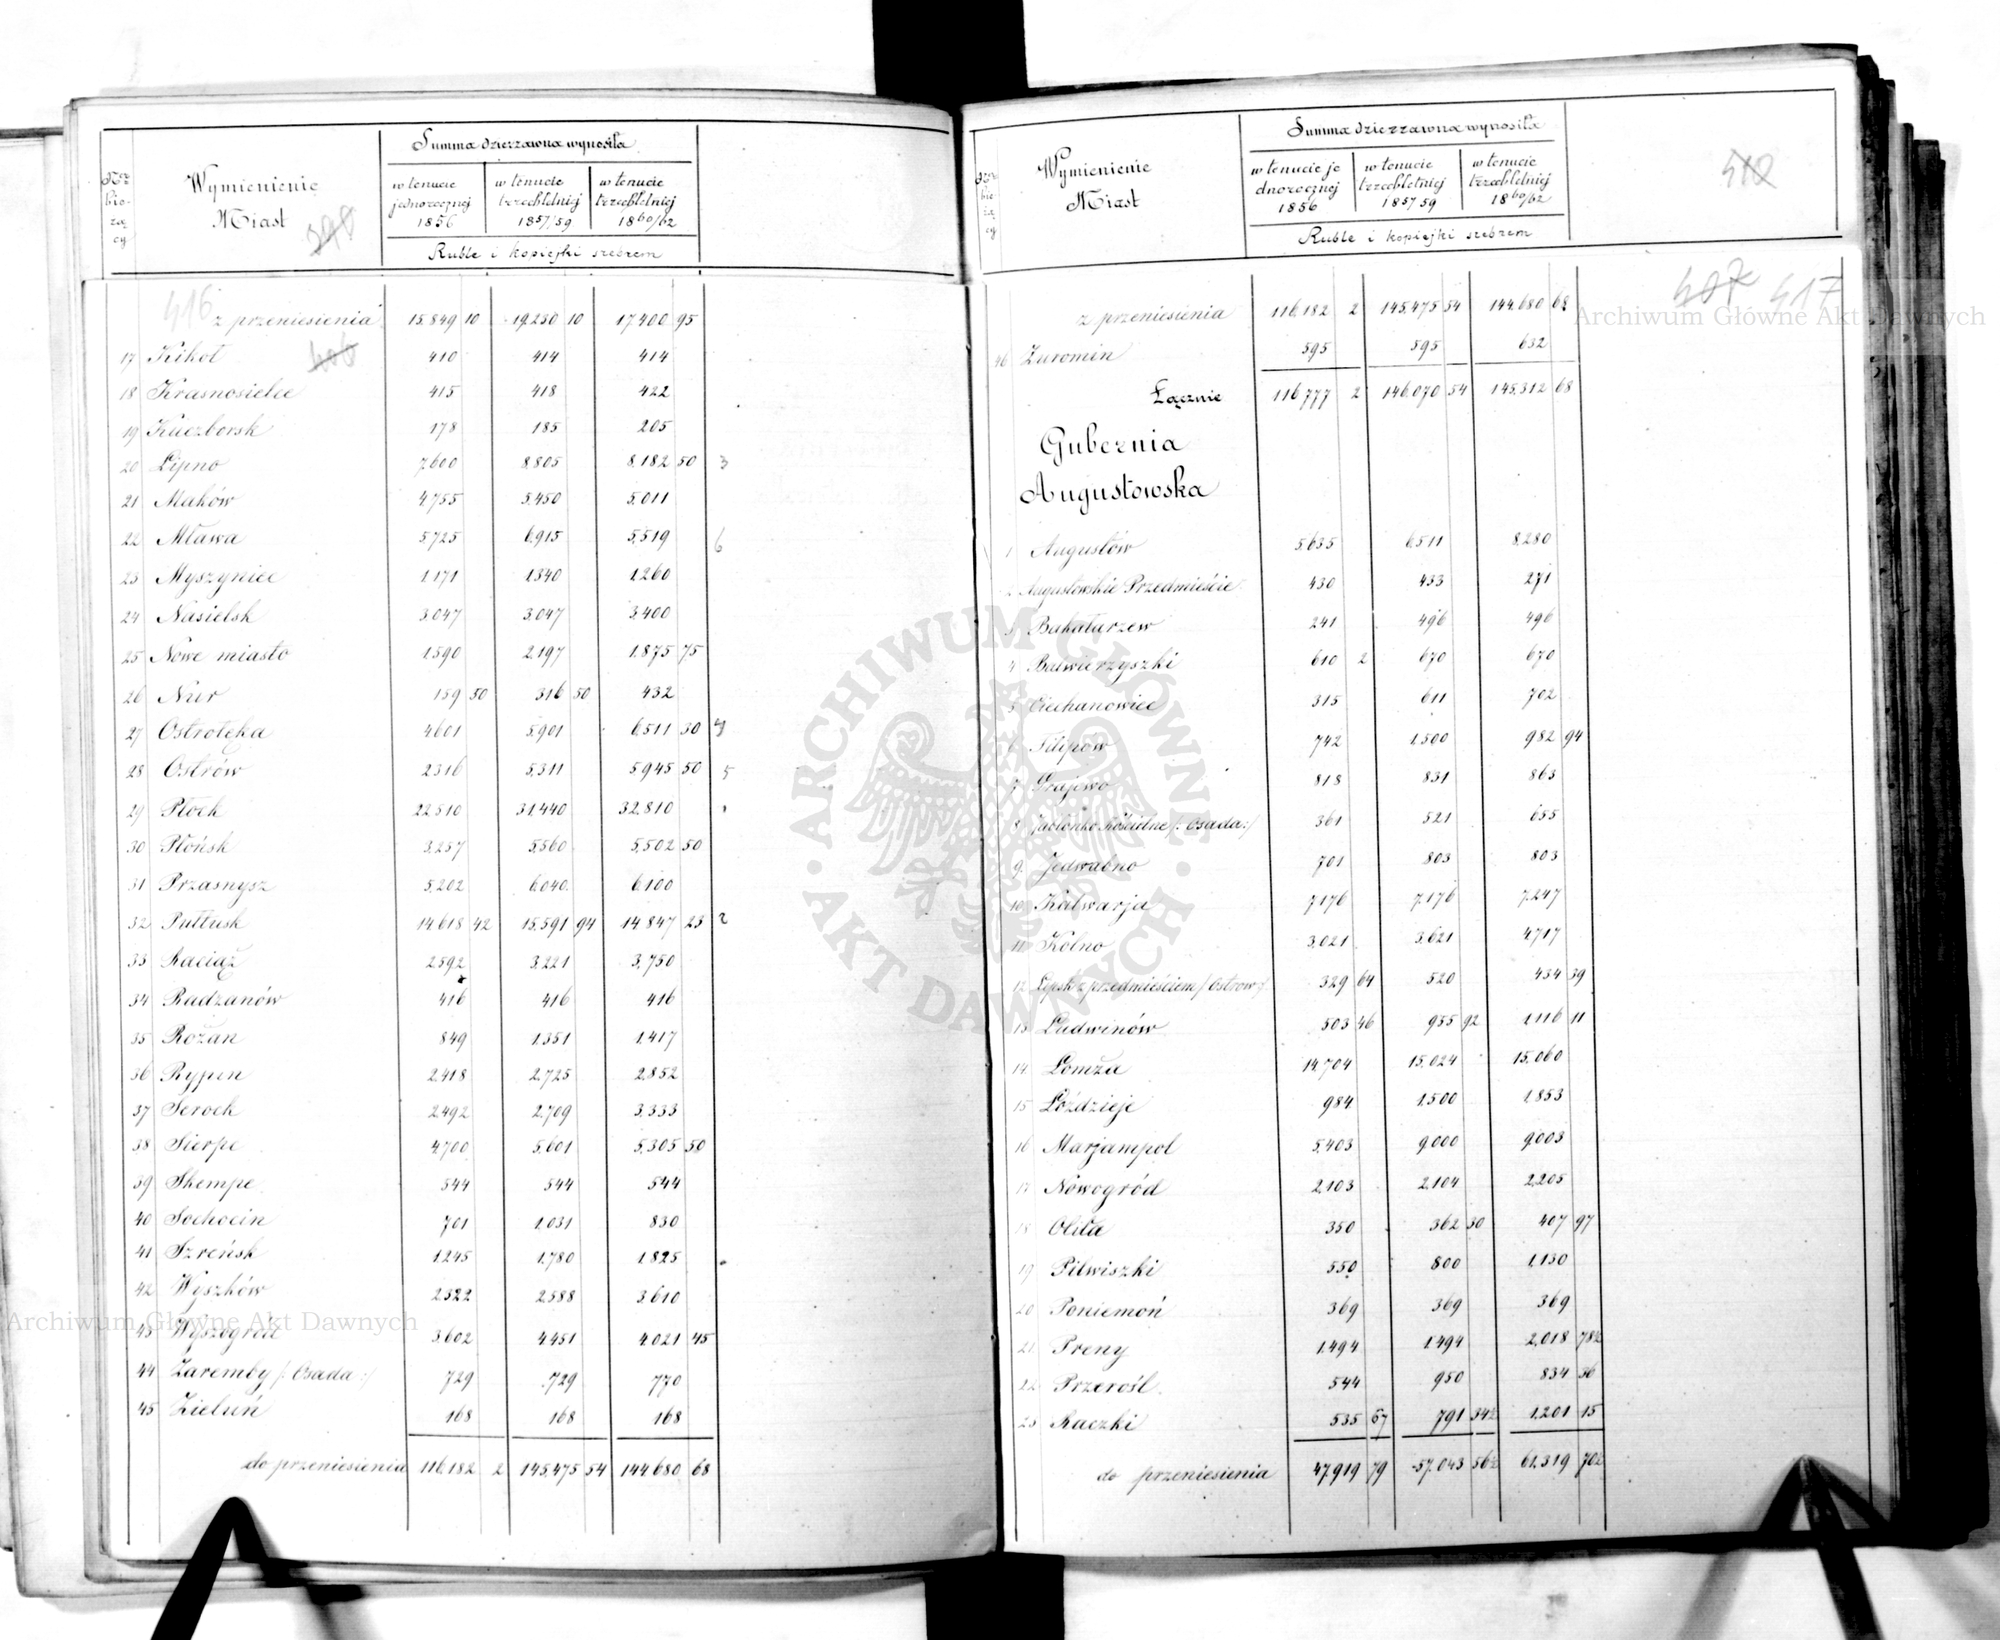 Nr bieżący
Wymienienie Miast
Summa dzierzawna wynosiła
w tenucie jednorocznej 1856
w tenucie trzechletniej 1857/59
w tenucie trzechletniej 1860/62
Ruble i kopiejki srebrem
398
416
406
z przeniesienia 15.849 10 19.250 10 17.400 95
17 Kikoł 410 414 414
18 Krasnosielce 415 418 422
19 Kuczborsk 178 185 205
20 Lipno 7.600 8.805 8.182 50 3
21 Maków 4.755 5.450 5.011
22 Mława 5.725 6.915 5.519 6
23 Myszyniec 1.171 1.340 1.260
24 Nasielsk 3.047 3.047 3.400
25 Nowe miasto 1.590 2.197 1.875 75
26 Nur 159 50 316 50 432
27 Ostrołęka 4601 5.901 6.511 30 4
28 Ostrów 2316 5.311 5.945 50 5
29 Płock 22.510 31.440 32.810
30 Płońsk 3.257 5.560 5.502 50
31 Przasnysz 5.202 6.040 6.100
32 Pułtusk 14.618 42 15.591 94 14.847 23 2
33 Raciąż 2592 3.221 3.750
34 Radzanów 416 416 416
35 Rożan 849 1.351 1.417
36 Rypin 2.418 2.725 2.852
37 Serock 2.492 2.709 3.333
38 Sierpc 4.700 5.601 5.305 50
39 Skempe 544 544 544
40 Sochocin 701 1.031 830
41 Szreńsk 1.245 1.780 1.825
42 Wyszków 2522 2588 3.610
43 Wyszogród 3.602 4.451 4.021 45
44 Zaremby /: Osada :/ 729 729 770
45 Zieluń 168 168 168
do przeniesienia 116.182 2 145.475 54 144.680 68
Nr bieżący
Wymienienie Miast
Summa dzierzawna wynosiła
w tenucie jednorocznej 1856
w tenucie trzechletniej 1857 59
w tenucie trzechletniej 1860/62
Ruble i kopiejki srebrem
412
407 417
z przeniesienia 116.182 2 145.475 54 144.680 68
46 Żuromin 595 595 632
Łącznie 116.777 2 146.070 54 145.312 68
Gubernia
Augustowska
1 Augustów 5.635 6.511 8.280
2 Augustowskie Przedmieście 430 433 271
3 Bakałarzew 241 496 496
4 Balwierzyszki 610 2 670 670
5 Ciechanowiec 315 611 702
6 Filipów 742 1.500 982 94
7 Grajewo 818 831 863
8 Jabłonko Kościelne /: Osada :/ 361 521 655
9 Jedwabno 701 803 803
10 Kalwarja 7176 7.176 7.247
11 Kolno 3.021 3.621 4717
12 Lipsk z przedmieściem /: Ostrow :/ 329 64 520 434 39
13 Ludwinów 503 46 955 92 1.116 11
14 Łomża 14.704 15.024 15.060
15 Łoździeje 984 1.500 1.853
16 Marjampol 5.403 9.000 9.003
17 Nowogród 2.103 2.104 2.205
18 Olita 350 362 30 407 97
19 Pilwiszki 550 800 1.130
20 Poniemoń 369 369 369
21 Preny 1.494 1.494 2.018 78½
22 Przerośl 544 950 834 36
23 Raczki 535 67 791 34½ 1.201 15
do przeniesienia 47.919 79 57.043 56½ 61.319 70½
Archiwum Główne Akt Dawnych
Archiwum Główne Akt Dawnych
ARCHIWUM GŁÓWNE
AKT DAWNYCH